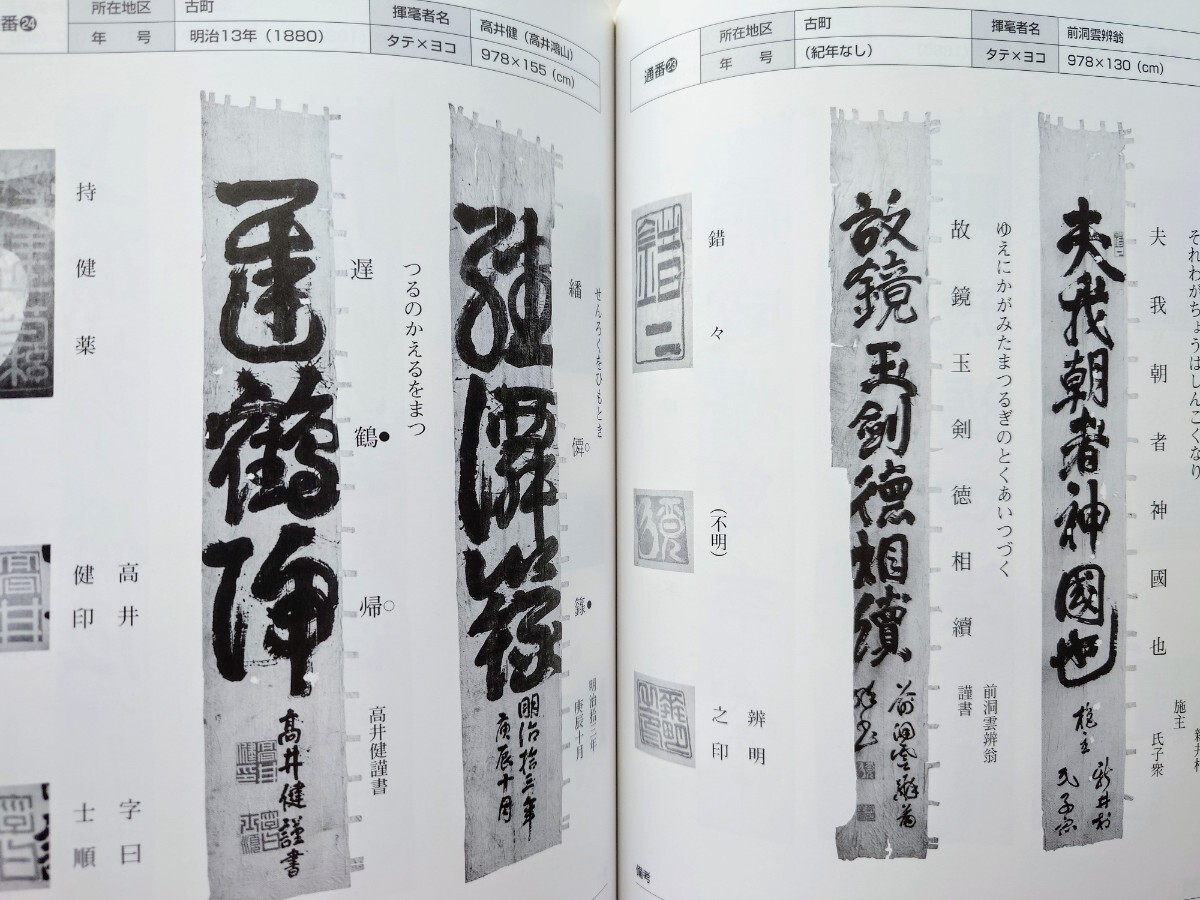 通番㉓
所在地区
古町
揮毫者名
前洞雲辨翁
年 号
(紀年なし)
タテ×ヨコ
978×130 (cm)
それわがちょうはしんこくなり
夫我朝者神國也
夫我朝者神國也
施主
氏子衆
施主 新井村
氏子衆
ゆえにかがみたまつるぎのとくあいつづく
故鏡玉剣徳相續
前洞雲辨翁
謹書
故鏡玉劍德相續
前洞雲辨翁
謹書
錯々
(不明)
辨明
之印
備考
番㉔
所在地区
古町
揮毫者名
高井健(高井鴻山)
年 号
明治13年(1880)
タテ×ヨコ
978×155 (cm)
せんろくをひもとき
繙僊。籙•
明治拾三年
庚辰十月
繙僊籙
明治拾三年
庚辰十月
つるのかえるをまつ
遅鶴•帰○
高井健謹書
遲鶴歸
髙井健謹書
持健薬
高井
健印
字曰
士順